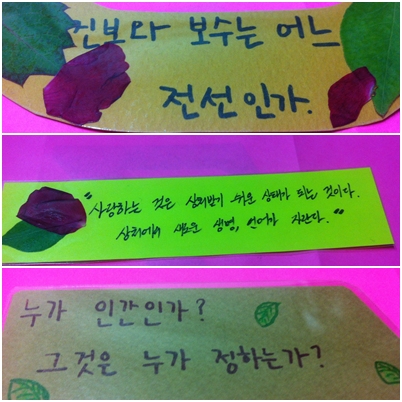 진보와 보수는 어느
전선인가.
"사랑하는 것은 상처받기 쉬운 상태가 되는 것이다.
상처에서 새로운 생명, 언어가 자란다."
누가 인간인가?
그것은 누가 정하는가?